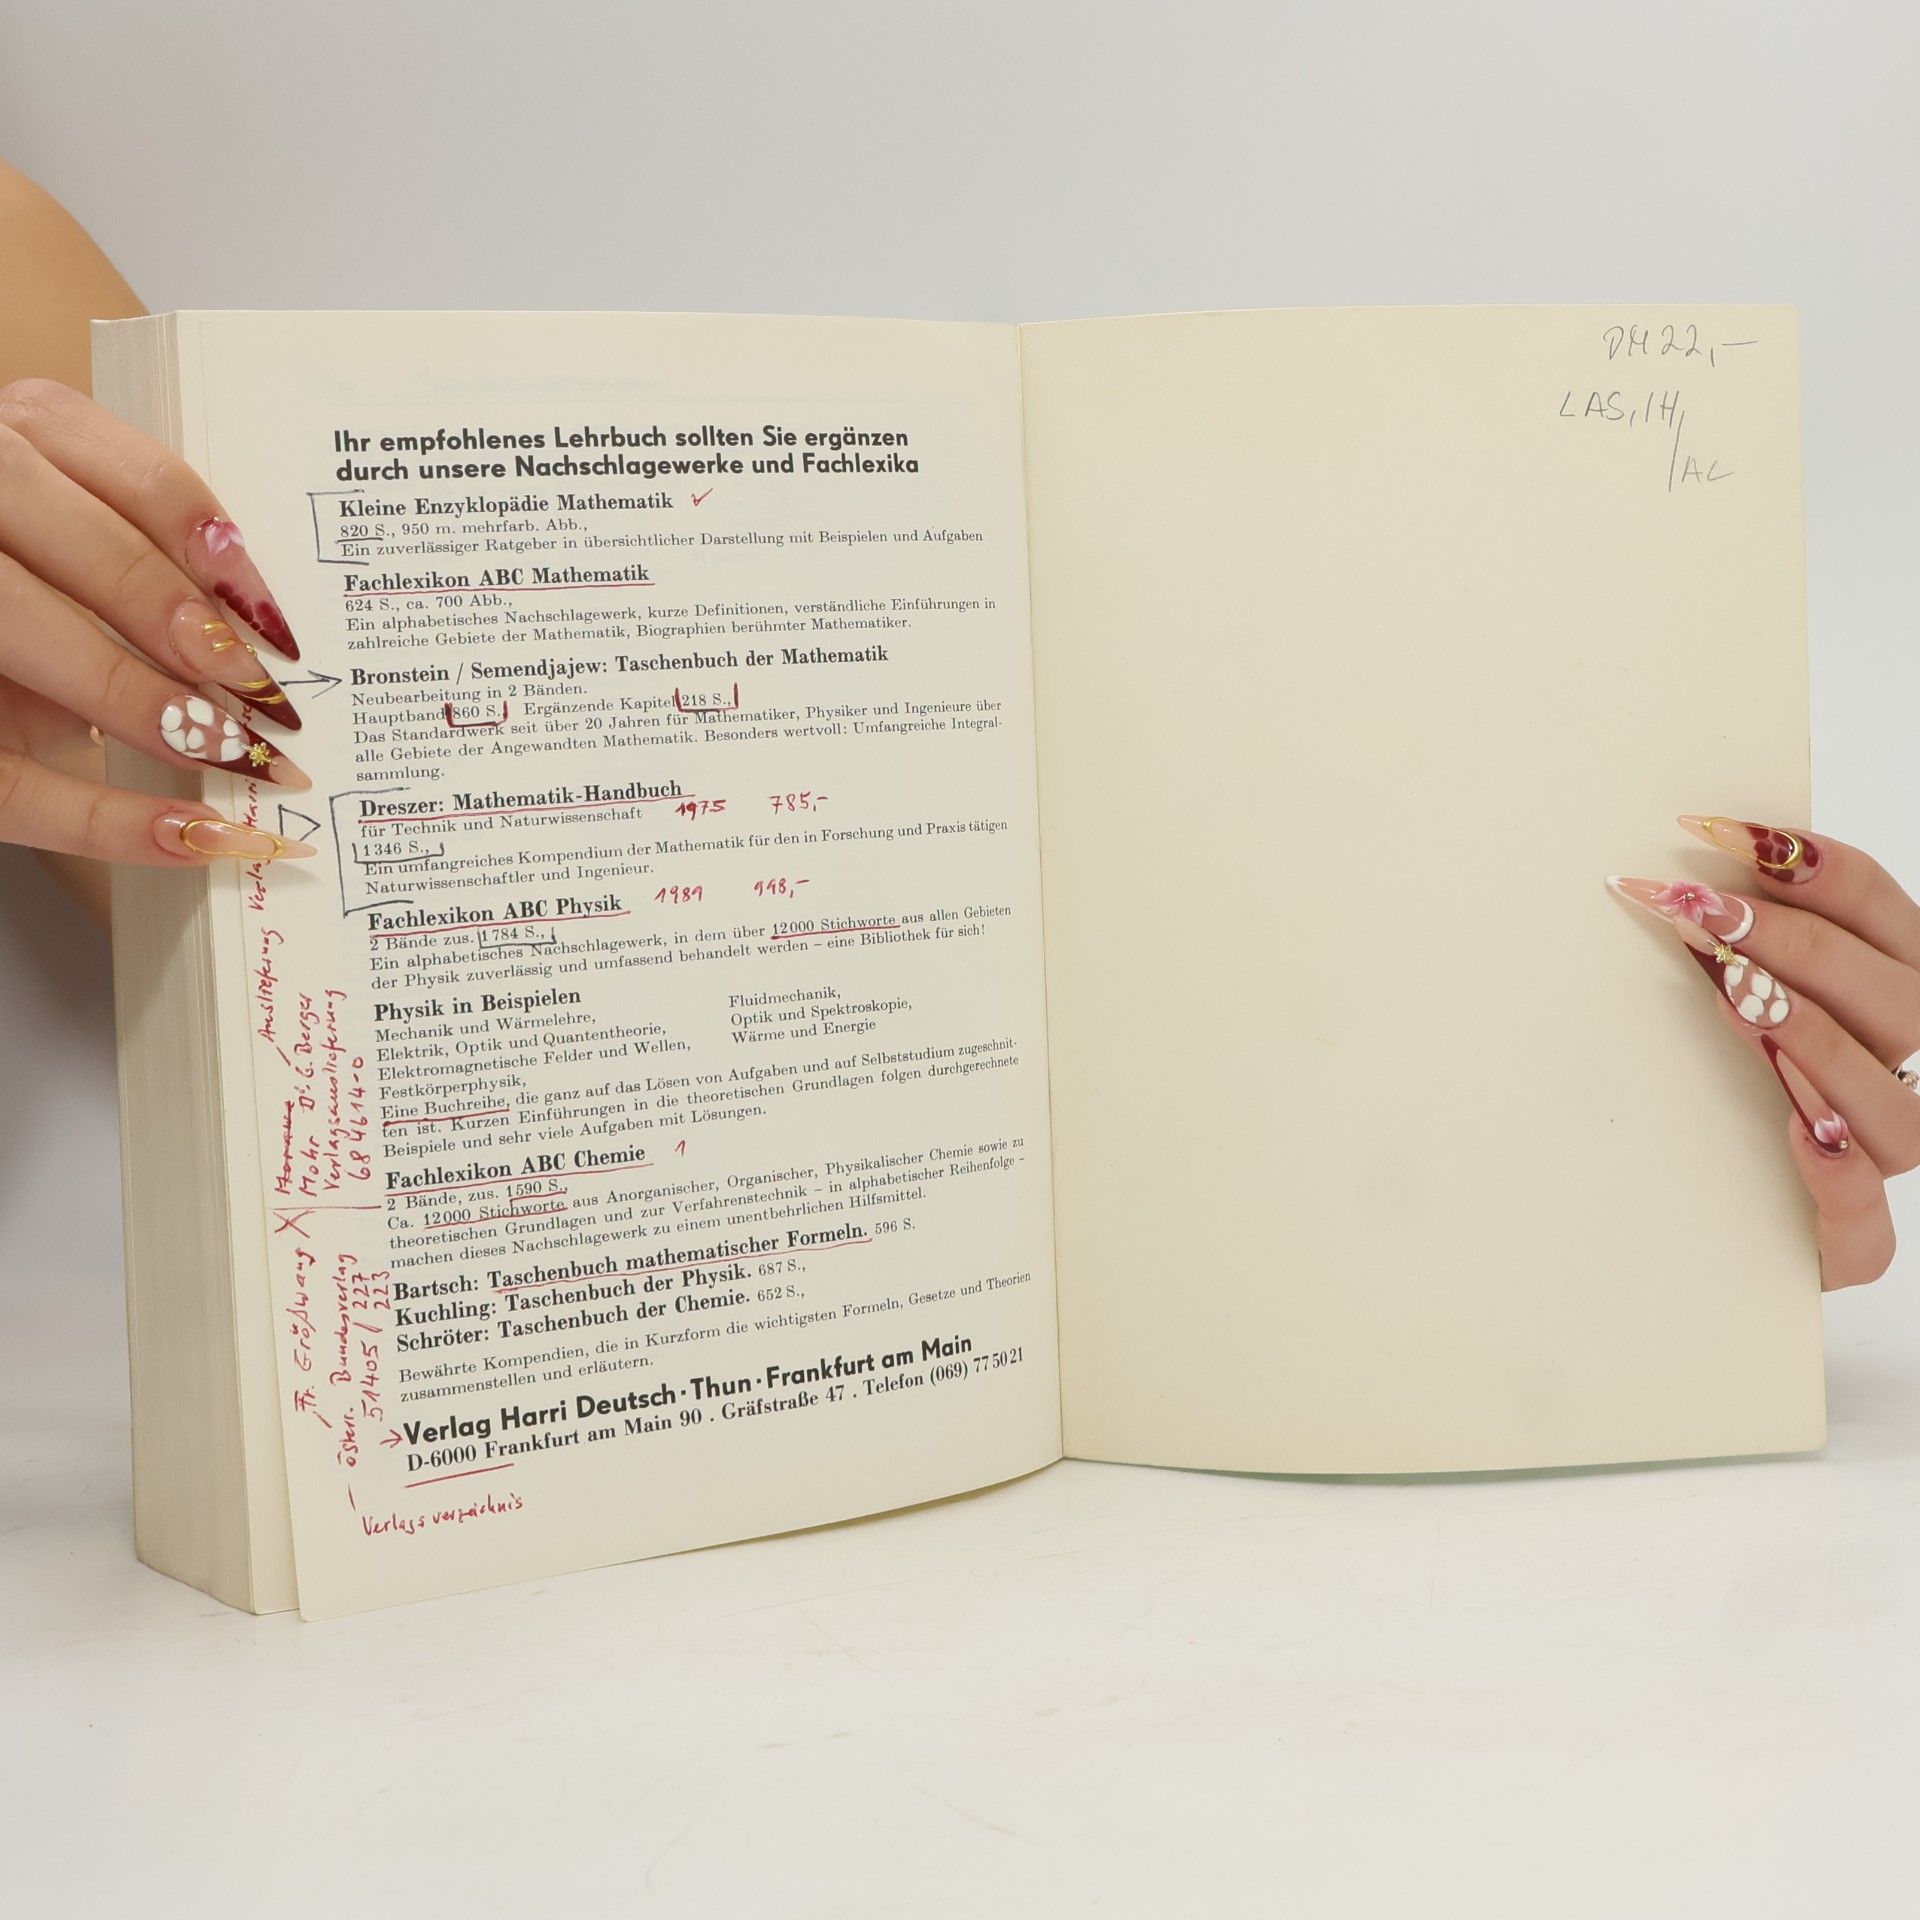 Ihr empfohlenes Lehrbuch sollten Sie ergänzen
durch unsere Nachschlagewerke und Fachlexika
Kleine Enzyklopädie Mathematik
820 S., 950 m. mehrfarb. Abb.,
Ein zuverlässiger Ratgeber in übersichtlicher Darstellung mit Beispielen und Aufgaben
Fachlexikon ABC Mathematik
624 S., ca. 700 Abb.,
Ein alphabetisches Nachschlagewerk, kurze Definitionen, verständliche Einführungen in
zahlreiche Gebiete der Mathematik, Biographien berühmter Mathematiker.
Bronstein / Semendjajew: Taschenbuch der Mathematik
Neubearbeitung in 2 Bänden.
Hauptband 860 S., Ergänzende Kapitel 218 S.,
Das Standardwerk seit über 20 Jahren für Mathematiker, Physiker und Ingenieure über
alle Gebiete der Angewandten Mathematik. Besonders wertvoll: Umfangreiche Integral-
sammlung.
Dreszer: Mathematik-Handbuch
für Technik und Naturwissenschaft 1975 785,-
1346 S.,
Ein umfangreiches Kompendium der Mathematik für den in Forschung und Praxis tätigen
Naturwissenschaftler und Ingenieur.
Fachlexikon ABC Physik 1989 998,-
2 Bände zus. 1784 S.,
Ein alphabetisches Nachschlagewerk, in dem über 12000 Stichworte aus allen Gebieten
der Physik zuverlässig und umfassend behandelt werden – eine Bibliothek für sich!
Physik in Beispielen
Mechanik und Wärmelehre,
Elektrik, Optik und Quantentheorie,
Elektromagnetische Felder und Wellen,
Festkörperphysik,
Fluidmechanik,
Optik und Spektroskopie,
Wärme und Energie
Eine Buchreihe, die ganz auf das Lösen von Aufgaben und auf Selbststudium zugeschnit-
ten ist. Kurzen Einführungen in die theoretischen Grundlagen folgen durchgerechnete
Beispiele und sehr viele Aufgaben mit Lösungen.
Fachlexikon ABC Chemie 1
2 Bände, zus. 1590 S.,
Ca. 12000 Stichworte aus Anorganischer, Organischer, Physikalischer Chemie sowie zu
theoretischen Grundlagen und zur Verfahrenstechnik – in alphabetischer Reihenfolge –
machen dieses Nachschlagewerk zu einem unentbehrlichen Hilfsmittel.
Bartsch: Taschenbuch mathematischer Formeln. 596 S.
Kuchling: Taschenbuch der Physik. 687 S.,
Schröter: Taschenbuch der Chemie. 652 S.,
Bewährte Kompendien, die in Kurzform die wichtigsten Formeln, Gesetze und Theorien
zusammenstellen und erläutern.
Verlag Harri Deutsch · Thun · Frankfurt am Main
D-6000 Frankfurt am Main 90 . Gräfstraße 47 . Telefon (069) 775021
Verlagsverzeichnis
Auslieferung
Mohr Dr. E. Berger
Verlagsauslieferung
684614-0
Fr. Größwang
österr. Bundesverlag
51405 / 227
223
DM 22,—
LAS, IH,
/AC